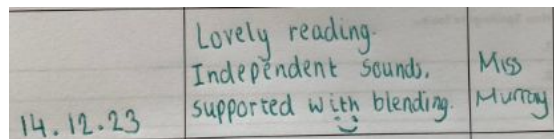 Lovely reading.
Independent sounds,
supported with blending.
14.12.23
Miss
Murray